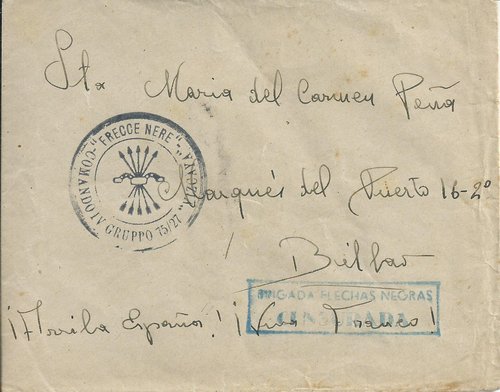 Sta Maria del Carmen Peña
COMANDO IV GRUPPO 75/27 "FRECCE NERE"
Marqués del Puerto 16-2º
Bilbao
BRIGADA FLECHAS NEGRAS
CENSURADA
¡Arriba España! ¡Viva Franco!